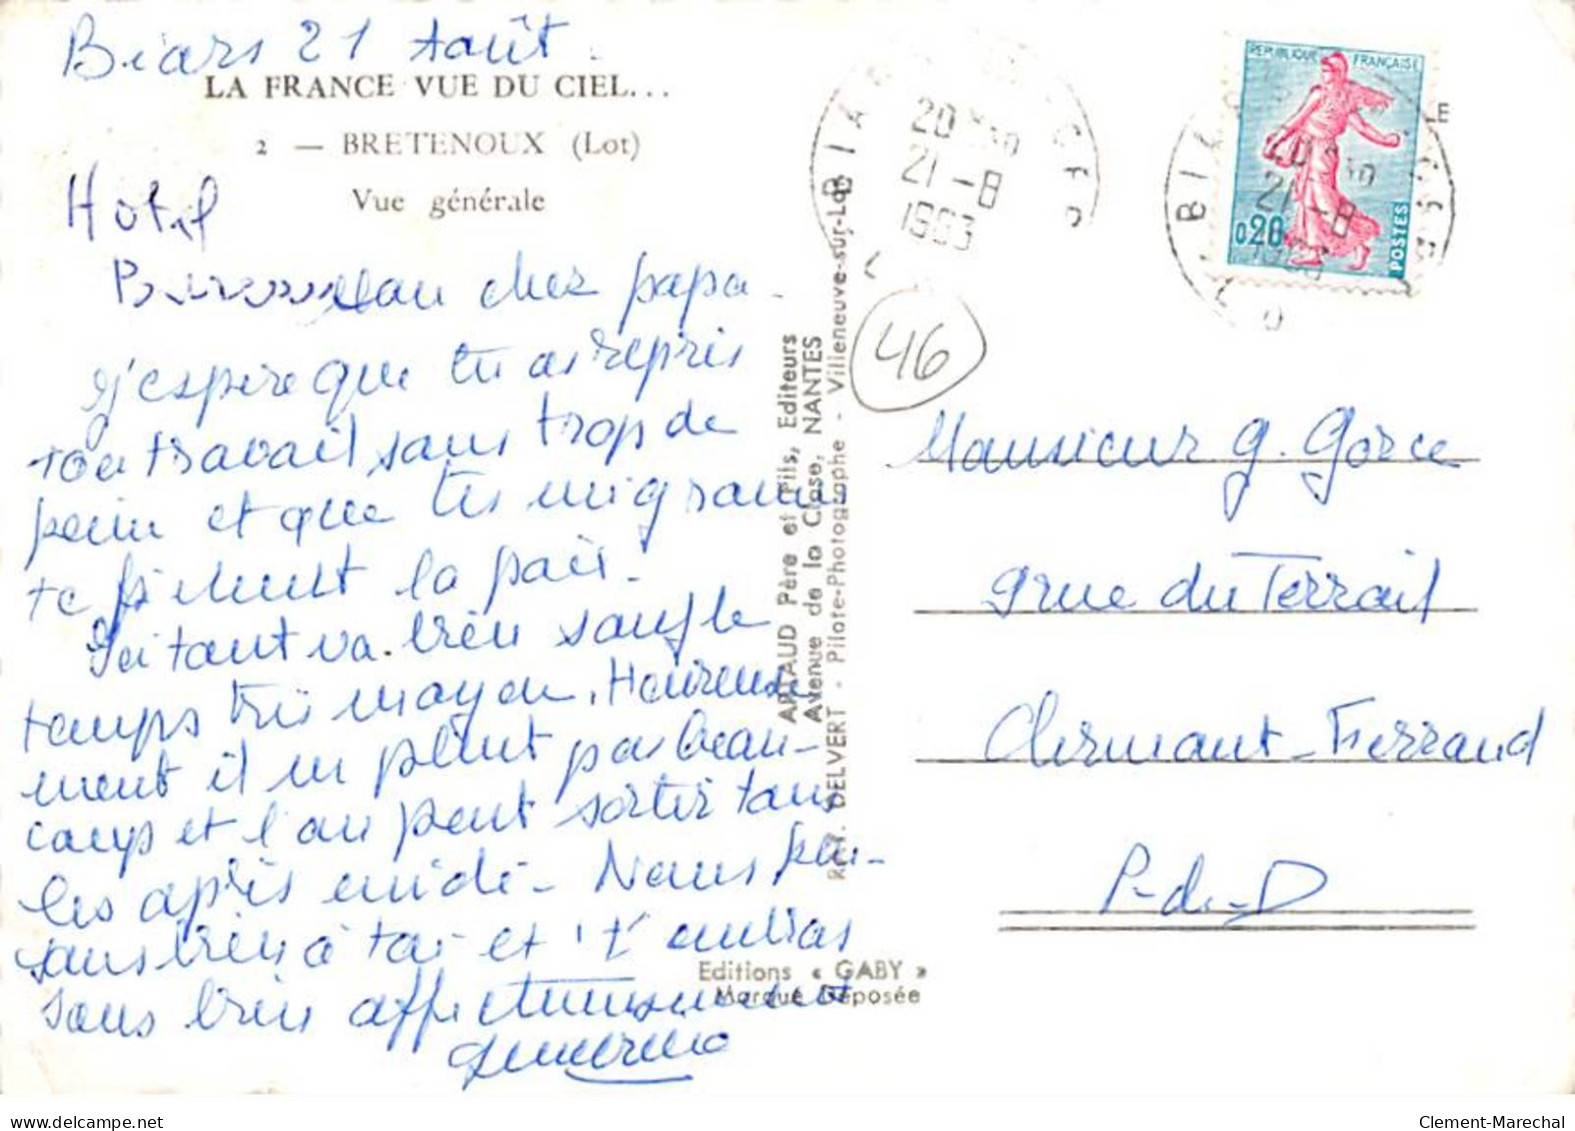 Biars 21 Août.
LA FRANCE VUE DU CIEL...
2 — BRETENOUX (Lot)
Vue générale
Hotel
chez papa.
J'espère que tu as repris
ton travail sans trop de
peine et que tes migraines
te fichent la paix.
Ici tout va bien sauf le
temps très moyen. Heureuse-
ment il ne pleut pas beau-
coup et l'on peut sortir tous
les après midi. Nous pen-
sons bien à toi et t'embras
sons bien affectueusement
ARTAUD Père et Fils, Editeurs
Avenue de la Close, NANTES
Réf. DELVERT - Pilote-Photographe - Villeneuve-sur-Lot
Editions « GABY »
Marque Déposée
BIARS
20 30
21-8
1963
REPUBLIQUE FRANÇAISE
0,20
POSTES
BIARS
21-8
46
Monsieur G. Gorce
9 rue du Terrail
Clermont-Ferrand
P-de-D
delcampe.net
Clement-Marechal